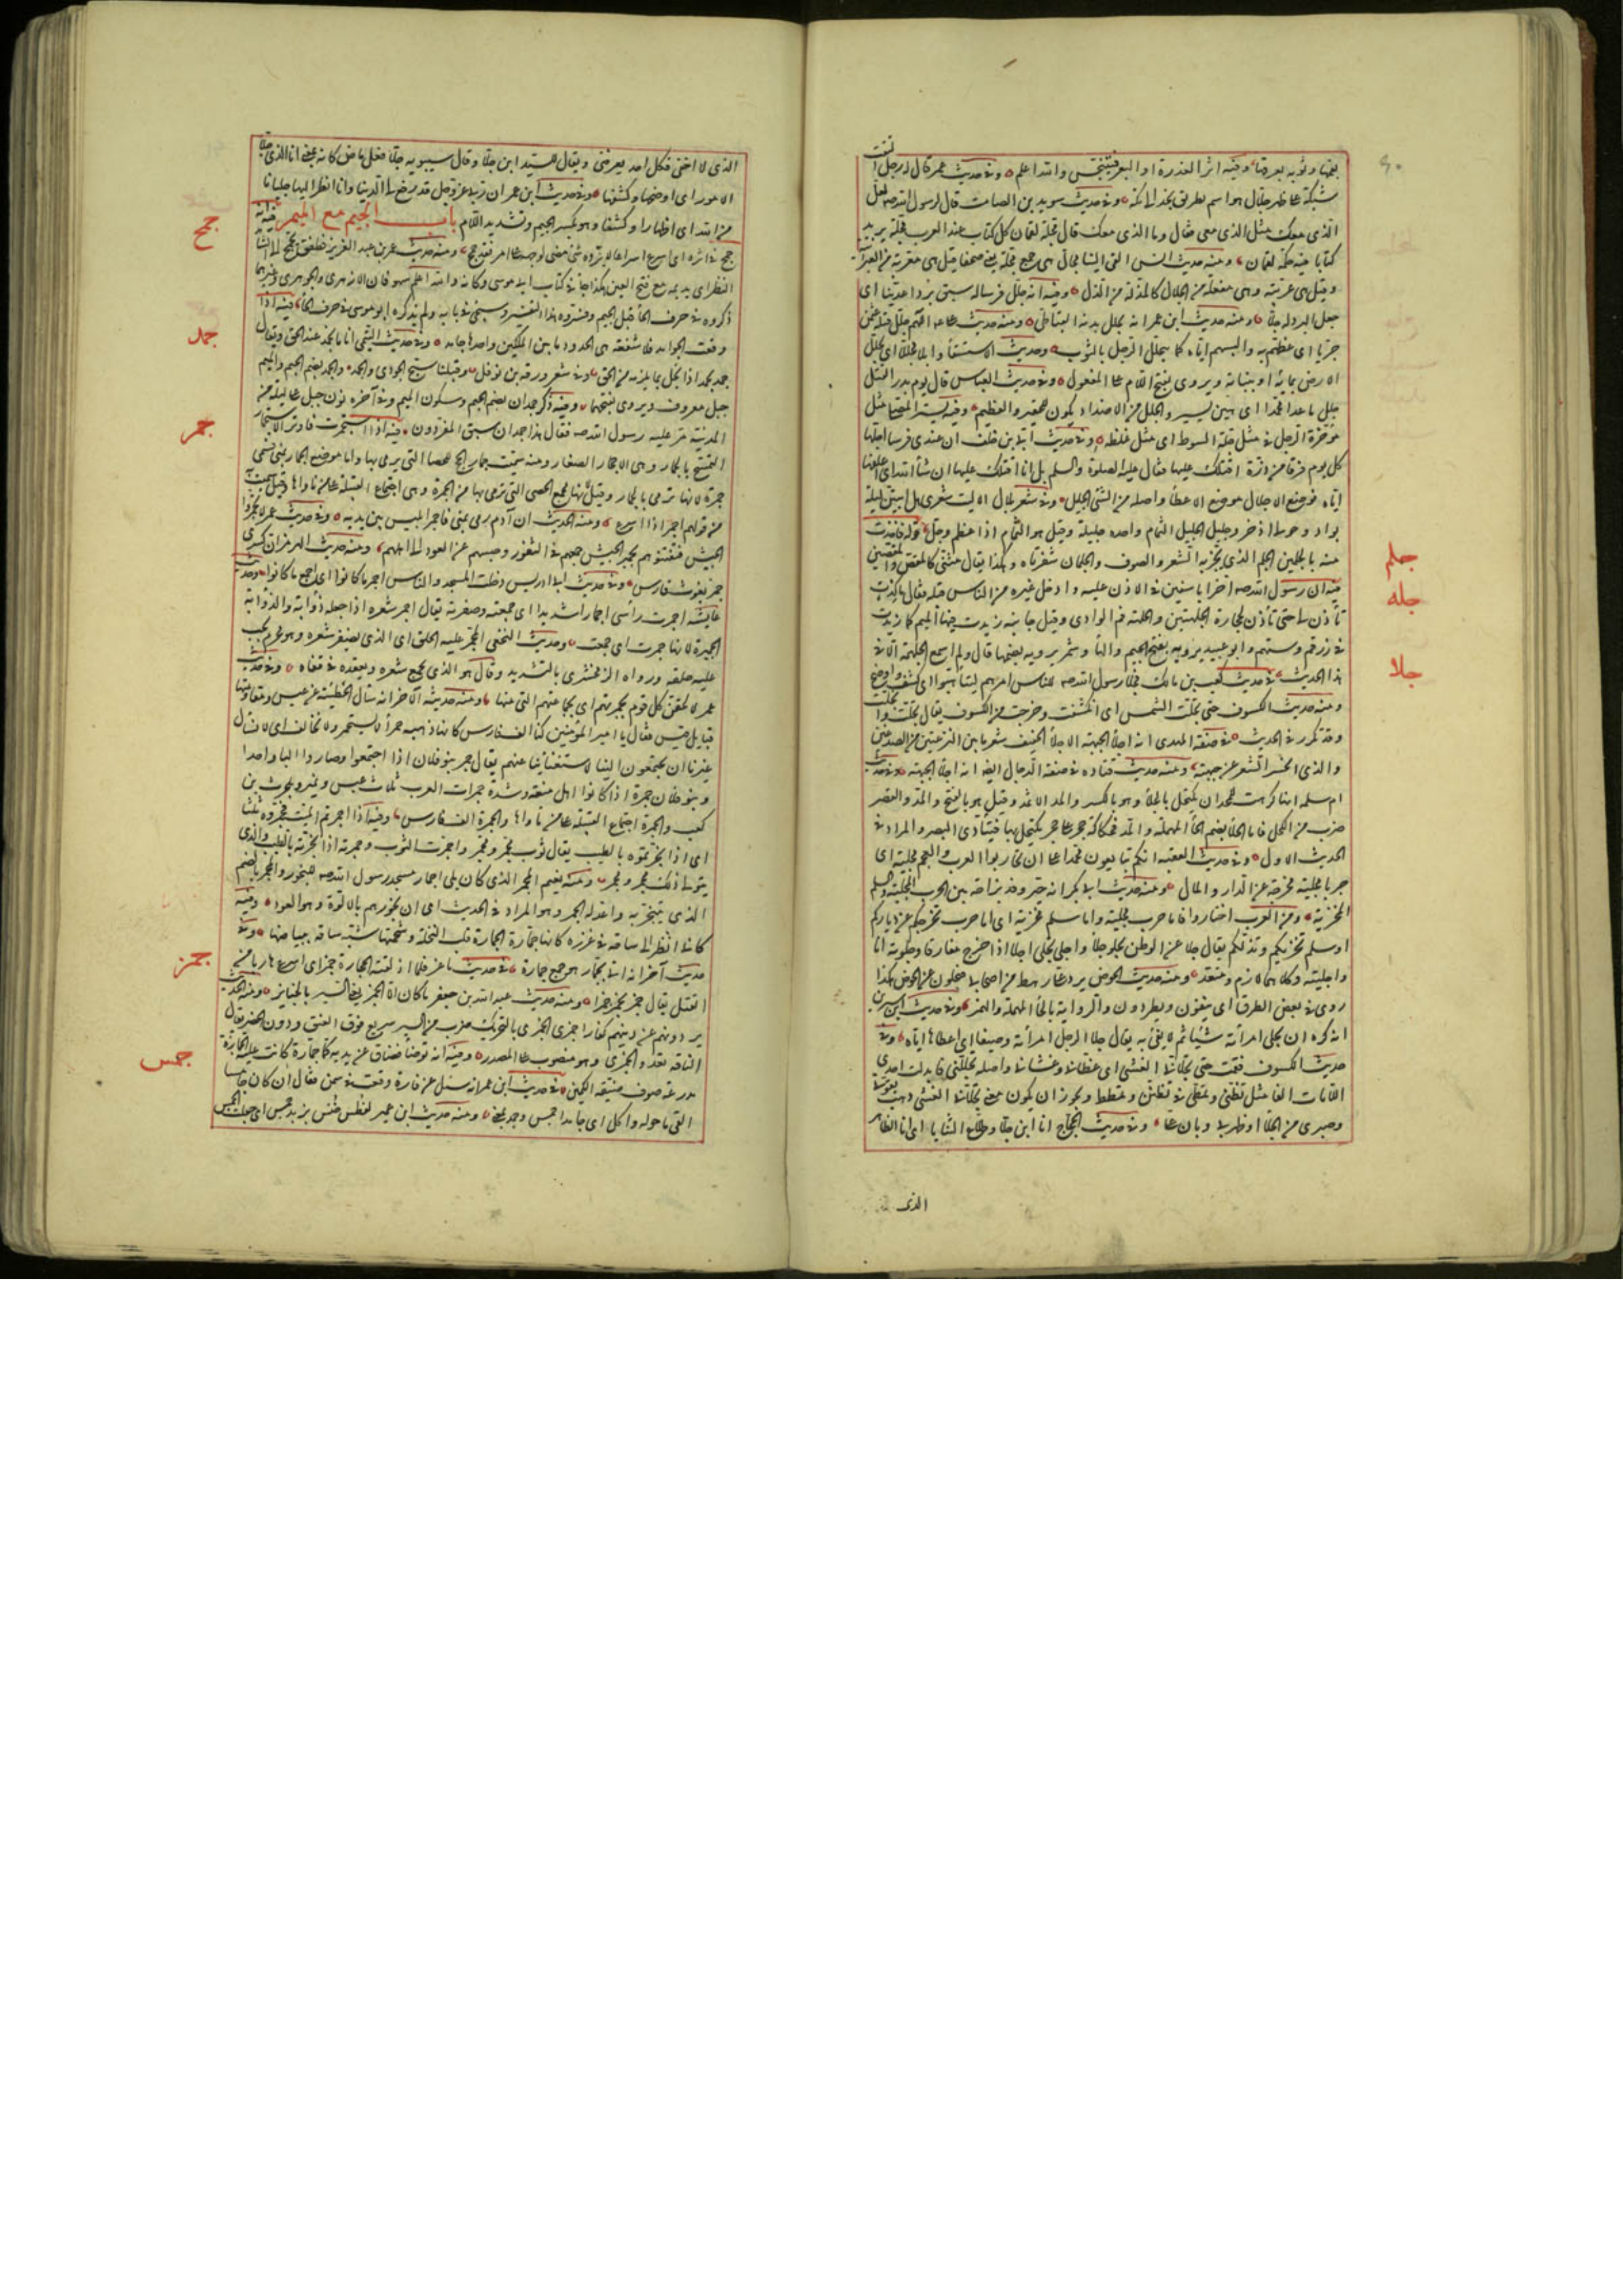 شبكة على ظهر جلال هو اسم لطريق نجد الى مكة وفي حديث سويد بن الصامت قال لرسول الله صه لعل
الذي معك مثل الذي معي فقال وما الذي معك قال مجلة لقمان كل كتاب عند العرب مجلة يريد
كتابا فيه حكمة لقمان ومنه حديث انس القي الينا مجال هي جمع مجلة يعني صحفا قيل هي معربة من العبرانية
وقيل هي عربية وهي مفعلة من الجلال كالمذلة من الذل وفيه انه جلل فرسا له سبق بردا عدنيا اي
جعل البرد له جلا ومنه حديث ابن عمر انه يجلل بدنه القباطي ومنه حديث علي اللهم جلل قتلة عثمن
خزيا اي غطهم به والبسهم اياه كما يتجلل الرجل بالثوب وحديث الاستسقا وابلا مجللا اي يجلل
الارض بمائه او بنباته ويروى بفتح اللام على المفعول وفي حديث العباس قال يوم بدر القتل
جلل ما عدا محمدا اي هين يسير والجلل من الاضداد يكون للحقير والعظيم وفيه يستر المصلي مثل
مؤخرة الرحل في مثل جلة السوط اي مثل غلظه وفي حديث ابي بن خلف ان عندي فرسا اجلها
كل يوم فرقا من ذرة اقتلك عليها فقال عليه الصلوة والسلم بل انا اقتلك عليها ان شا الله اي اعلفها
اياه فوضع الاجلال موضع الاعطا واصله من الشي الجليل وفي شعر بلال الا ليت شعري هل ابيتن ليلة
بواد وحولي اذخر وجليل الجليل الثمام واحده جليلة وقيل هو الثمام اذا عظم وجل
منه بالجلمين الجلم الذي يجز به الشعر والصوف والجلمان شفرتاه وهكذا يقال مثنى كالمقص والمقصين
فيه ان رسول الله صه اخر ابا سفين في الاذن عليه وادخل غيره من الناس قبله فقال ما كدت
تأذن لي حتى تأذن لحجارة الجلهتين والجلهة فم الوادي وقيل جانبه زيدت فيها الميم كما زيدت
في زرقم وستهم وابو عبيد يرويه بفتح الجيم والها وشمر يرويه بضمها قال ولم اسمع الجلهمة الا في
هذا الحديث في حديث كعب بن مالك فجلا رسول الله صه للناس امرهم ليتأهبوا اي كشف واوضح
ومنه حديث الكسوف حتى تجلت الشمس اي انكشفت وخرجت من الكسوف يقال تجلت وانجلت
وقد تكرر في الحديث في صفة المهدي انه اجلا الجبهة الاجلا الخفيف شعر ما بين النزعتين من الصدغين
والذي انحسر الشعر عن جبهته ومنه حديث قتاده في صفة الدجال ايضا انه اجلا الجبهة وفي حديث
ام سلمه انها كرهت للمحد ان تكتحل بالجلا وهو بالكسر والمد الاثمد وقيل هو بالفتح والمد والقصر
ضرب من الكحل فاما الحلا بضم الحا المهملة والمد فحكاكة حجر على حجر يكتحل بها فيتأذى البصر والمراد في
الحديث الاول وفي حديث العقبه انكم تبايعون محمدا على ان تحاربوا العرب والعجم مجلية اي
حربا مجلية مخرجة عن الدار والمال ومنه حديث ابي بكر انه خير وفد بزاخة بين الحرب المجلية والسلم
المخزية ومن العرب اختاروا فاما حرب مجلية واما سلم مخزية اي اما حرب تخرجكم عن دياركم
او سلم تخزيكم وتذلكم يقال جلا عن الوطن يجلو جلا واجلى يجلي اجلا اذا خرج مفارقا وجلوته انا
واجليته وكلاهما لازم ومتعد ومنه حديث الحوض يرد علي رهط من اصحابي فيجلون عن الحوض هكذا
روي في بعض الطرق اي ينفون ويطردون والرواية بالحا المهملة والهمز وفي حديث ابن سيرين
انه كره ان يجلي امرأته شيئا ثم لا يفي به يقال جلا الرجل امرأته وصيفا اي اعطاها اياه وفي
حديث الكسوف فقمت حتى تجلاني الغشي اي غطاني وغشاني واصله تجللني فابدلت احدى
اللامات الفا مثل تظنى وتمطى في تظنن وتمطط ويجوز ان يكون معنى تجلاني الغشي ذهب بقوتي
وصبري من الجلا او ظهر بي وبان علي وفي حديث الحجاج انا ابن جلا وطلاع الثنايا اي انا الظاهر
جلم
جله
جلا
الذي
الذي لا اخفى فكل احد يعرفني ويقال للسيد ابن جلا وقال سيبويه جلا فعل ماض كانه بمعنى انا الذي جلا
الامور اي اوضحها وكشفها وفي حديث ابن عمر ان ربي عز وجل قد رفع لي الدنيا وانا انظر اليها جليانا
من الله اي اظهارا وكشفا وهو بكسر الجيم وتشديد اللام باب الجيم مع الميم فيه انه
جمح في اثره اي اسرع اسراعا لا يرده شي ومنه حديث عمر بن عبد العزيز فطفق يجمح الى الشاهد
النظر اي يديمه مع فتح العين هكذا جا في كتاب ابي موسى وكانه والله اعلم سهو فان الازهري والجوهري وغيرهما
ذكروه في حرف الحا قبل الجيم وفسروه هذا التفسير وسيجي في بابه ولم يذكره ابو موسى في حرف الحا فيه اذا
وقعت الجوامد فلا شفعة هي الحدود ما بين الملكين واحدها جامد وفي حديث التيمي انا ما نجمد عند الحق ويقال
جمد يجمد اذا بخل بما يلزمه من الحق وفي شعر ورقه بن نوفل وقبلنا سبح الجودي والجمد والجمد بضم الجيم والميم
جبل معروف ويروى بفتحهما وفيه ذكر جمدان بضم الجيم وسكون الميم وفي آخره نون جبل على ليلة من
المدينة مر عليه رسول الله صه فقال هذا جمدان سبق المفردون فيه اذا استجمرت فاوتر الاستجمار
التمسح بالجمار وهي الاحجار الصغار ومنه سميت جمار الحج للحصا التي يرمى بها واما موضع الجمار بمنى فسمي
جمرة لانها ترمى بالجمار وقيل لانها مجمع الحصى التي ترمى بها من الجمرة وهي اجتماع القبيلة على من ناواها وقيل سميت به
من قولهم اجمر اذا اسرع ومنه الحديث ان آدم رمى بمنى فاجمر ابليس بين يديه وفي حديث عمر لا تجمروا
الجيش فتفتنوهم تجمير الجيش جمعهم في الثغور وحبسهم عن العود الى اهلهم ومنه حديث الهرمزان ان كسرى
جمر بعوث فارس وفي حديث ابي ادريس دخلت المسجد والناس اجمر ما كانوا اي اجمع ما كانوا وحديث
عايشة اجمرت رأسي اجمارا شديدا اي جمعته وضفرته يقال اجمر شعره اذا جعله ذؤابة والذؤابة
الجميرة لانها جمرت اي جمعت وحديث النخعي المجمر عليه الحلق اي الذي يضفر شعره وهو محرم يجب
عليه حلقه ورواه الزمخشري بالتشديد وقال هو الذي يجمع شعره ويعقده في قفاه وفي حديث
عمر لالحقن كل قوم بجمرتهم اي بجماعتهم التي منها ومنه حديثه الاخر انه سأل الحطيئة عن عبس ومقاومتها
قبايل قيس فقال يا امير المؤمنين كنا الف فارس كاننا ذهبة حمرآ لا نستجمر ولا نحالف اي لا نسأل
غيرنا ان يجتمعوا الينا لاستغنائنا عنهم يقال جمر بنو فلان اذا اجتمعوا وصاروا البا واحدا
وبنو فلان جمرة اذا كانوا اهل منعة وشدة وجمرات العرب ثلاث عبس ونمير وبلحرث بن
كعب والجمرة اجتماع القبيلة على من ناواها والجمرة الف فارس وفيه اذا اجمرتم الميت فجمروه ثلثا
اي اذا بخرتموه بالطيب يقال ثوب مجمر ومجمر واجمرت الثوب وجمرته اذا بخرته بالطيب والذي
يتولى ذلك مجمر ومجمر ومنه نعيم المجمر الذي كان يلي اجمار مسجد رسول الله صه
الذي يتبخر به واعد له الجمر وهو المراد في الحديث اي ان بخورهم بالالوة وهو العود وفيه
كاني انظر الى ساقه في غرزه كانها جمارة الجمارة قلب النخلة وشحمتها شبه ساقه ببياضها وفي
حديث آخر انه اتي بجمار هو جمع جمارة في حديث ماعز فلما اذلقته الحجارة جمز اي اسرع هاربا من
القتل يقال جمز يجمز جمزا ومنه حديث عبد الله بن جعفر ما كان الا الجمز يعني السير بالجنايز ومنه الحديث
يردونهم عن دينهم كفارا جمزى الجمزى بالتحريك ضرب من السير سريع فوق العنق ودون الحضر يقال
الناقة تعدو الجمزى وهو منصوب على المصدر وفيه انه توضأ فضاق عن يديه كما جمازة كانت عليه الجمازة
مدرعة صوف ضيقة الكمين في حديث ابن عمر انه سئل عن فارة وقعت في سمن فقال ان كان جامسا
القي ما حوله واكل اي جامدا جمس وجمد بمعنى ومنه حديث ابن عمير لفطس خنس بزبد جمس
جمح
جمد
جمر
جمز
جمس